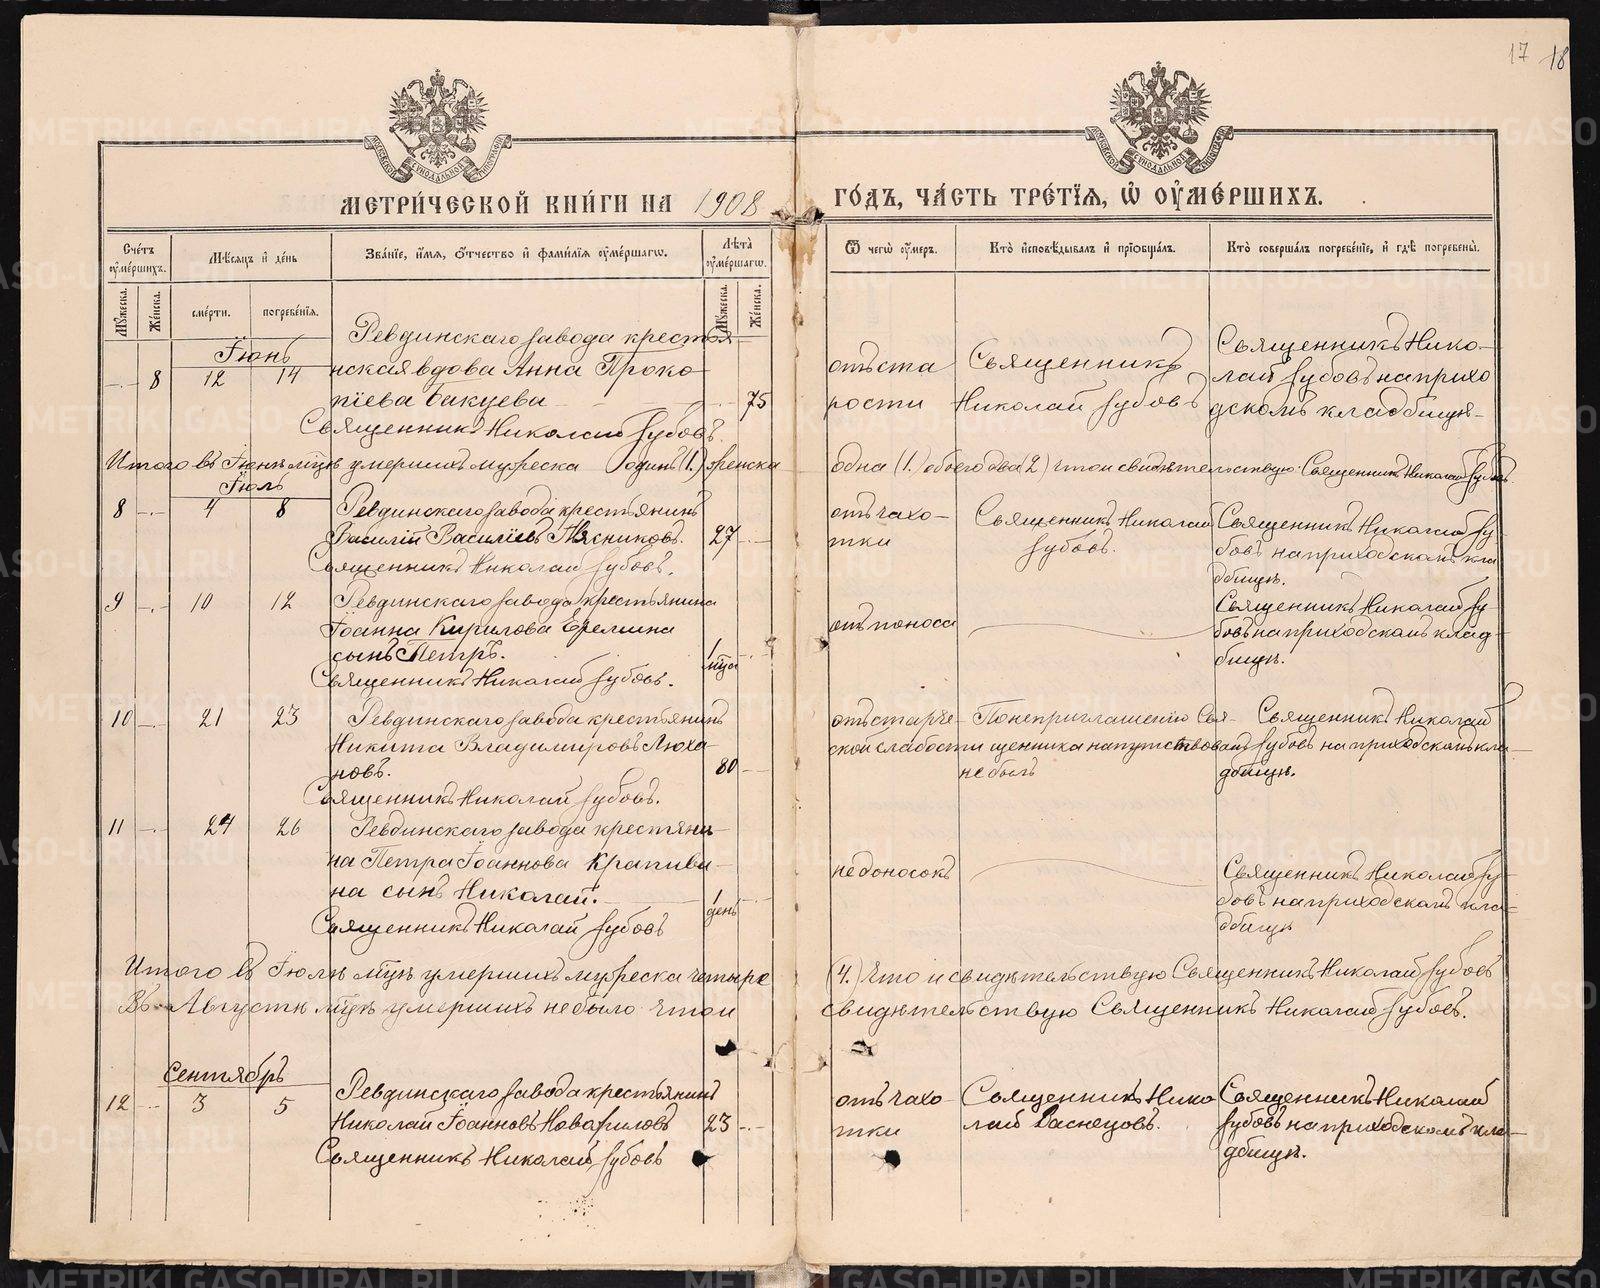 17 18
МЕТРИ́ЧЕСКОЙ КНИ́ГИ НА 1908 ГО́ДЪ, ЧА́СТЬ ТРЕ́ТЇѦ, Ѡ ОУМЕ́РШИХЪ.
Сче́тъ оуме́ршихъ.
Мѣ́сѧцъ и де́нь
Зва́нїе, и́мѧ, о́тчество и фами́лїѧ оуме́ршагѡ.
Лѣта̀ оуме́ршагѡ.
Ѿ чегѡ̀ оу́меръ.
Кто̀ исповѣ́дывалъ и прїобща́лъ.
Кто̀ соверша́лъ погребе́нїе, и гдѣ̀ погребены̀.
Мꙋ́жеска.
Же́нска.
сме́рти.
погребе́нїѧ.
Мꙋ́жеска.
Же́нска.
Іюнь
8 12 14
Ревдинскаго завода крестья-
нская вдова Анна Проко
піева Бакуева 75
Священникъ Николай Зубовъ.
отъ ста
рости
Священникъ
Николай Зубовъ
Священникъ Нико-
лай Зубовъ на прихо
дскомъ кладбищѣ
Итого въ Іюнѣ мцѣ умершихъ мужеска одинъ (1.) женска одна (1.) обоего два (2) что и свидѣтельствую Священникъ Николай Зубовъ.
Іюль
8 4 8
Ревдинскаго завода крестьянинъ
Василій Василіевъ Мясниковъ. 27
Священникъ Николай Зубовъ.
отъ чахо-
тки
Священникъ Николай
Зубовъ.
Священникъ Николай Зу-
бовъ на приходскомъ кла
дбищѣ.
9 10 12
Ревдинскаго завода крестьянина
Іоанна Кирилова Еремина
сынъ Петръ. 1 мца
Священникъ Николай Зубовъ.
отъ поноса
Священникъ Николай Зу-
бовъ на приходскомъ клад-
бищѣ.
10 21 23
Ревдинскаго завода крестьянинъ
Никита Владимировъ Люха-
новъ. 80
Священникъ Николай Зубовъ.
отъ старче-
ской слабости
По неприглашенію Свя-
щенника напутствованъ
не былъ
Священникъ Николай
Зубовъ на приходскомъ кла-
дбищѣ.
11 24 26
Ревдинскаго завода крестьяни-
на Петра Іоаннова Крапиви-
на сынъ Николай. 1 день
Священникъ Николай Зубовъ
недоносокъ
Священникъ Николай Зу-
бовъ на приходскомъ кла-
дбищѣ
Итого въ Іюлѣ мцѣ умершихъ мужеска четыре (4.) Что и свидѣтельствую Священникъ Николай Зубовъ
Въ Августѣ мцѣ умершихъ не было что и свидѣтельствую Священникъ Николай Зубовъ.
Сентябрь
12 3 5
Ревдинскаго завода крестьянинъ
Николай Іоанновъ Наварзиновъ 23
Священникъ Николай Зубовъ
отъ чахо-
тки
Священникъ Нико
лай Васнецовъ.
Священникъ Николай
Зубовъ на приходскомъ кла-
дбищѣ.
METRIKI.GASO-URAL.RU